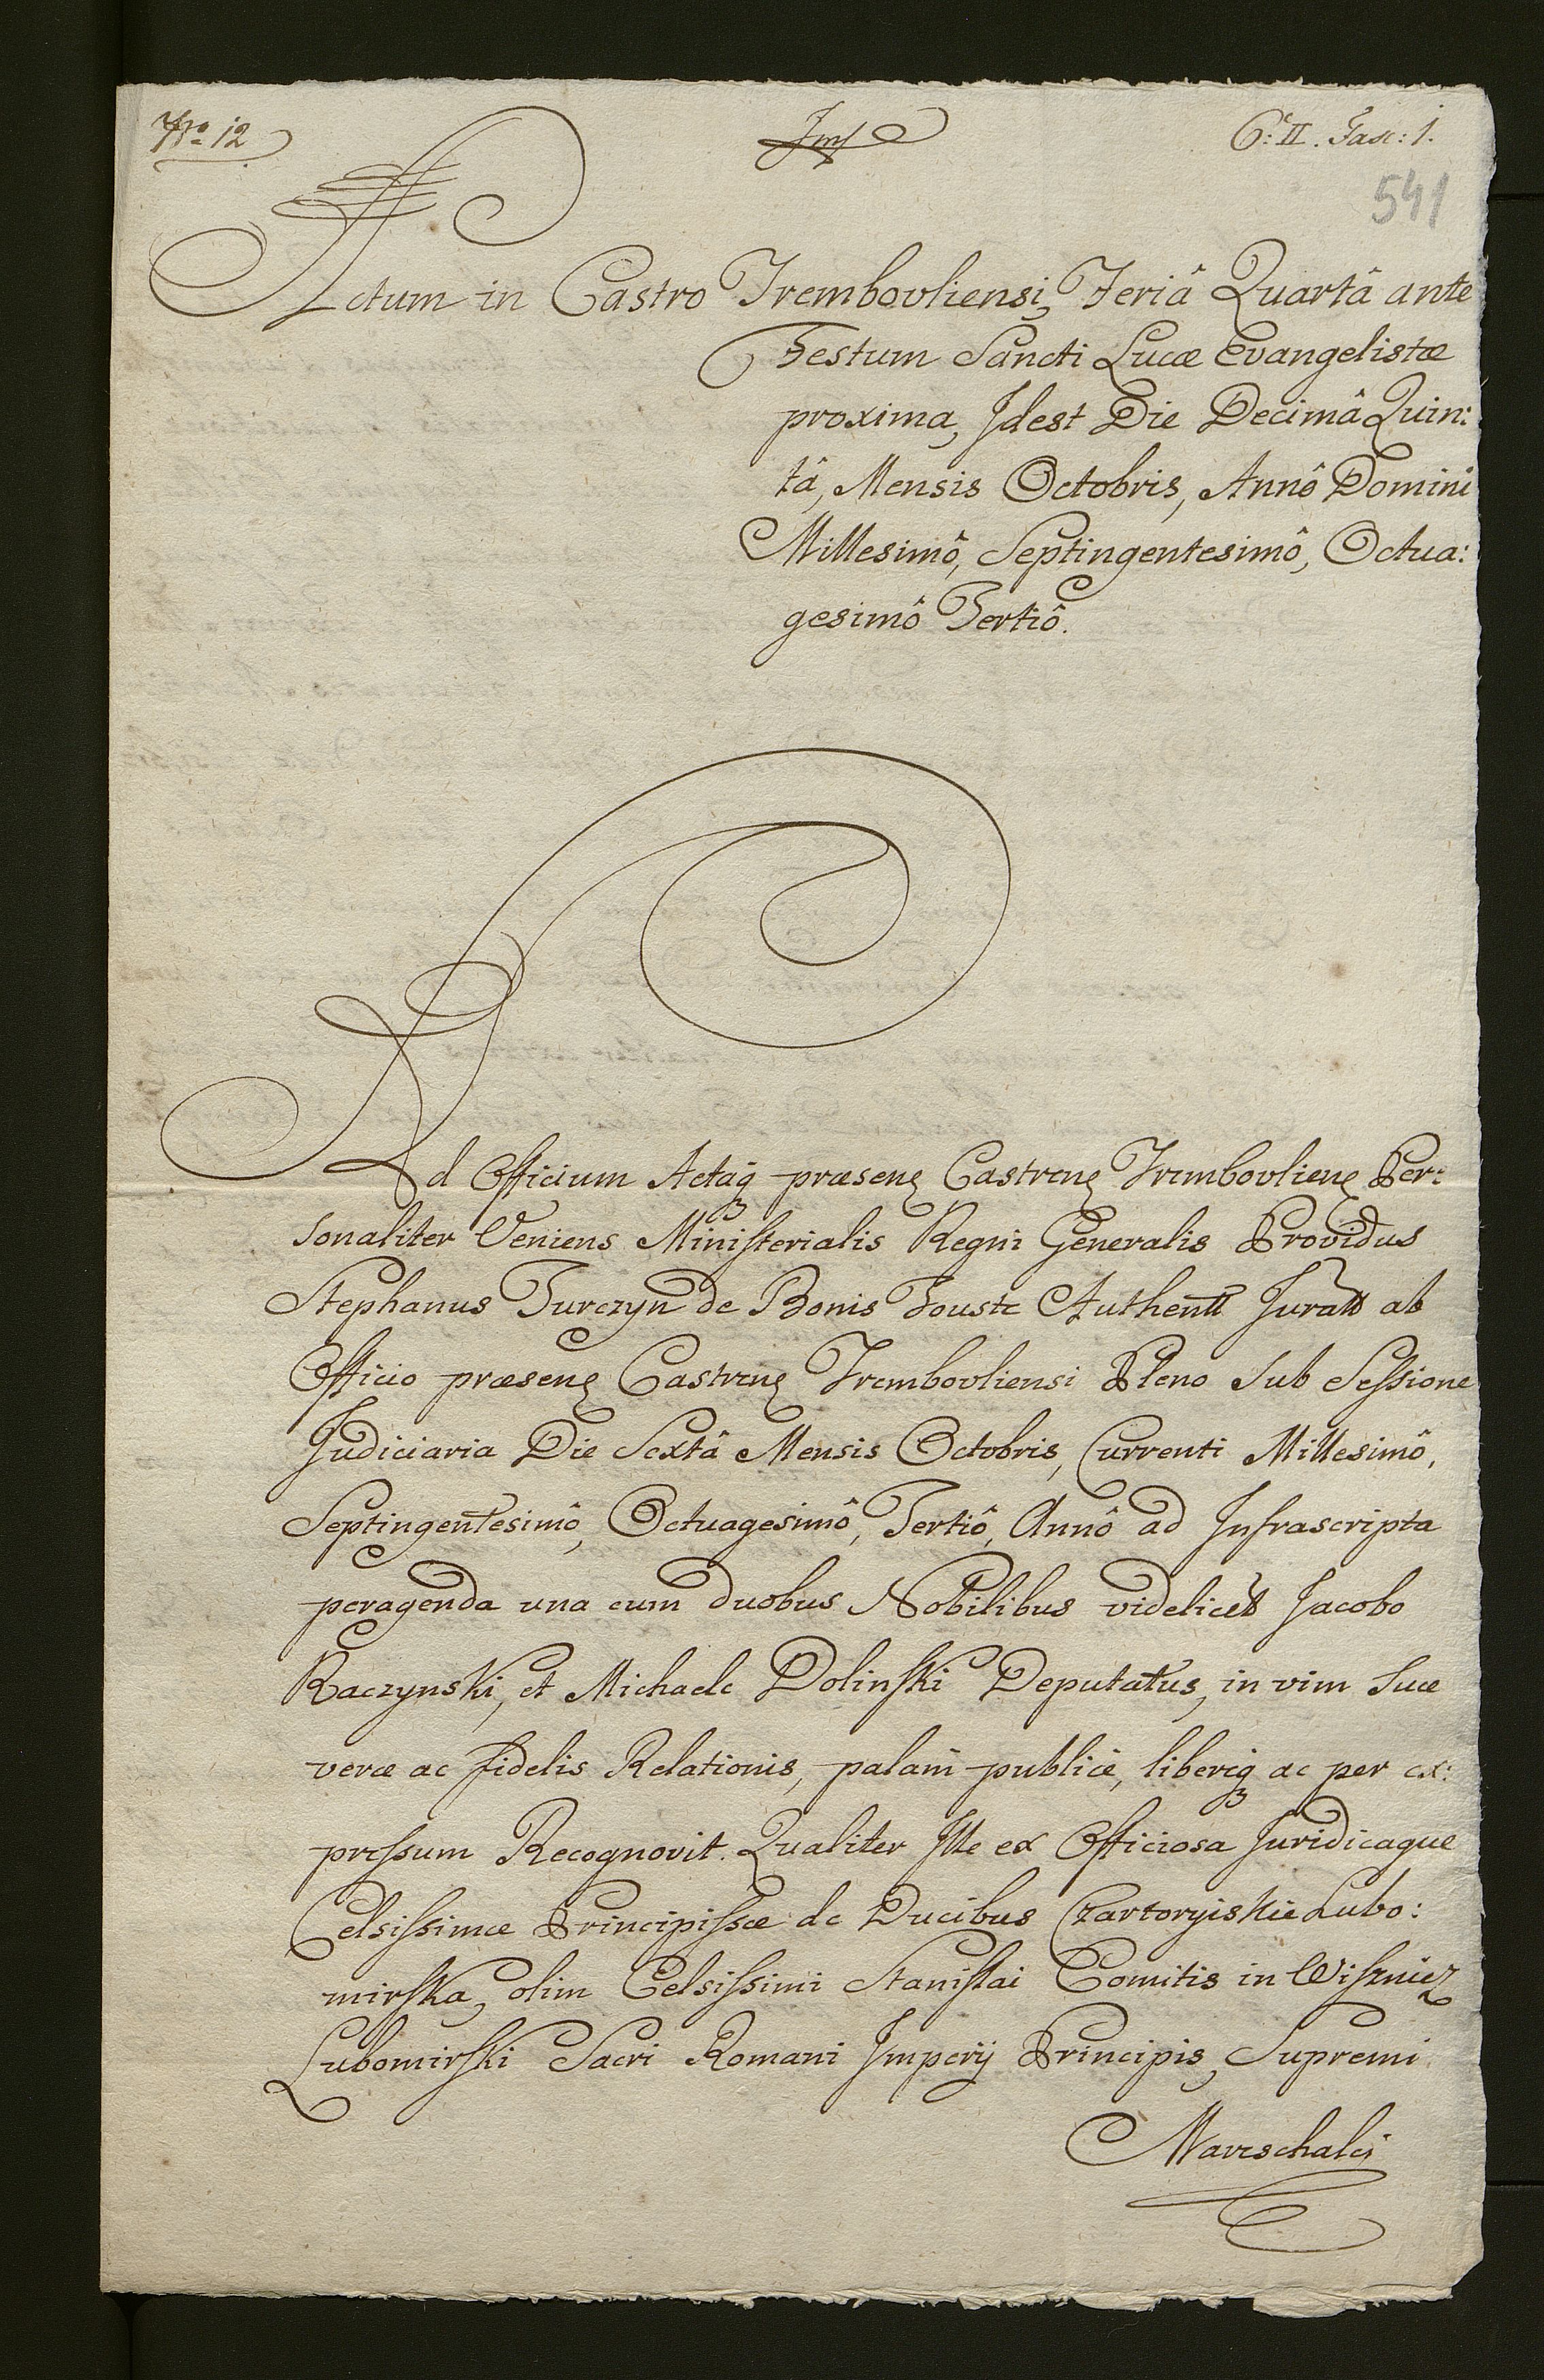 No 12
6: II. Fasc: 1.
541
Actum in Castro Trembovliensi, Feriâ Quartâ ante
Festum Sancti Lucæ Evangelistæ
proxima, Idest Die Decimâ Quin:
tâ, Mensis Octobris, Annô Domini
Millesimô, Septingentesimô, Octua:
gesimô Tertiô.
Ad Officium Actaq præsens Castrens Trembovliens Per:
sonaliter Veniens Ministerialis Regni Generalis Providus
Stephanus Turczyn de Bonis Touste Authentt Juratt ab
Officio præsens Castrens Trembovliensi Pleno Sub Sessione
Judiciaria Die Sextâ Mensis Octobris, Currenti Millesimô,
Septingentesimô, Octuagesimô, Tertiô, Annô ad Infrascripta
peragenda una cum duobus Nobilibus videlicèt Jacobo
Raczynski, et Michaele Dolinski Deputatus, in vim Suæ
veræ ac fidelis Relationis, palam publicè, liberèq ac per ex:
pressum Recognovit. Qualiter Ille ex Officiosa Juridicaque
Celsissimæ Principissæ de Ducibus Czartoryiskie Lubo:
mirska, olim Celsissimi Stanislai Comitis in Wisznicz
Lubomirski Sacri Romani Imperij Principis, Supremi
Mareschalci